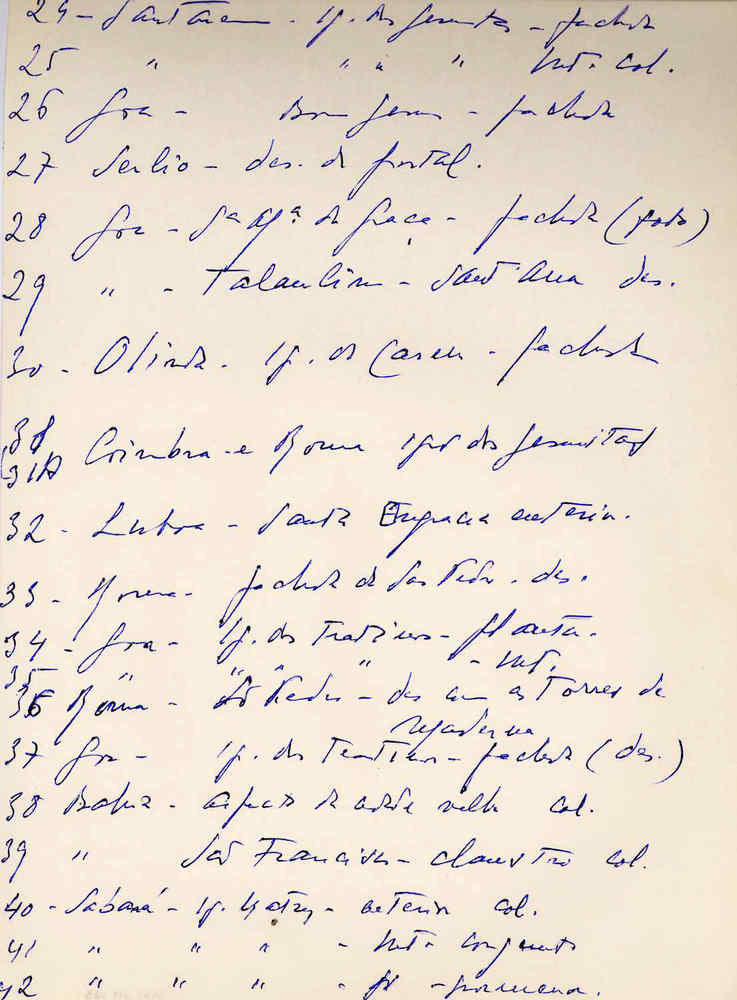 24 - Santarem - Ig. dos Jesuitas - fachada
25 " " " " Int. col.
26 Goa - Bom Jesus - fachada
27 Serlio - des. de portal.
28 Goa - Sta Mª da Graça - fachada (foto)
29 " - Talaulim - Sant'Ana des.
30 - Olinda - Ig. do Carmo - fachada
31
31A Coimbra e Roma Igas dos Jesuitas
32 - Lisboa - Santa Engracia exterior.
33 - Roma - fachada de Sao Pedro - des.
34 - Goa - Ig. dos Teatinos - planta.
35 " " " " - int.
36 Roma - São Pedro - des com as Torres de
Maderna
37 Goa - Ig. dos Teatinos - fachada (des.)
38 Bahia - aspecto da cidade velha col.
39 " São Francisco - claustro col.
40 - Sabará - Ig. Matriz - exterior col.
41 " " " - Int. conjunto
42 " " " -